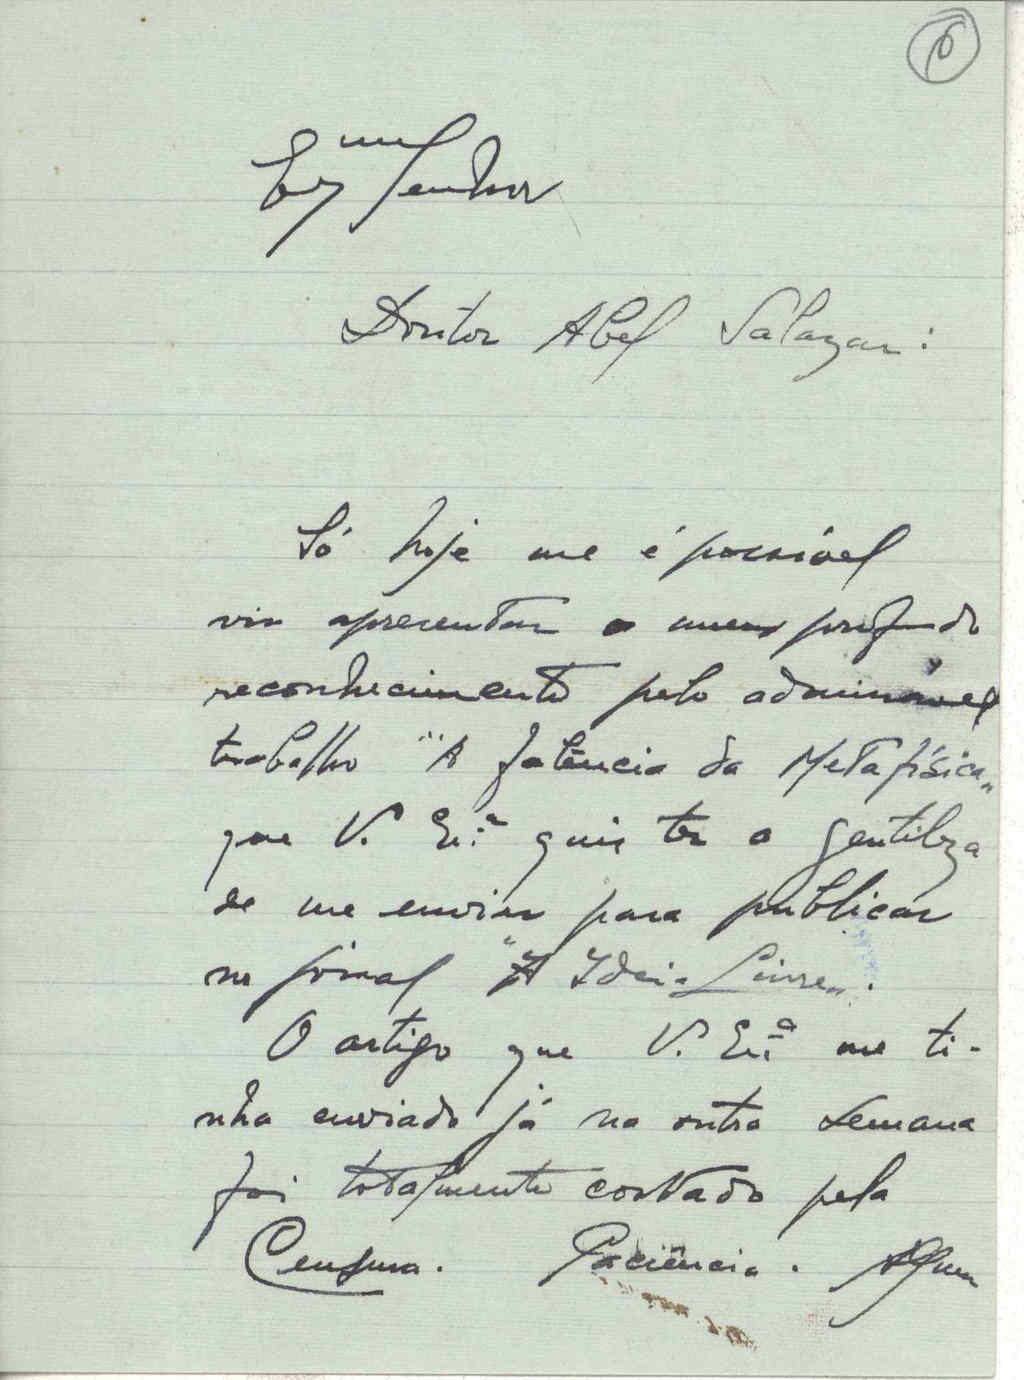 6
Ex.mo Senhor
Doutor Abel Salazar:
Só hoje me é possível
vir apresentar o meu profundo
reconhecimento pelo admirável
trabalho "A falência da Metafísica"
que V. Ex.ª quis ter a gentileza
de me enviar para publicar
no jornal "A Ideia Livre".
O artigo que V. Ex.ª me ti-
nha enviado já na outra semana
foi totalmente cortado pela
Censura. Paciência. Algum